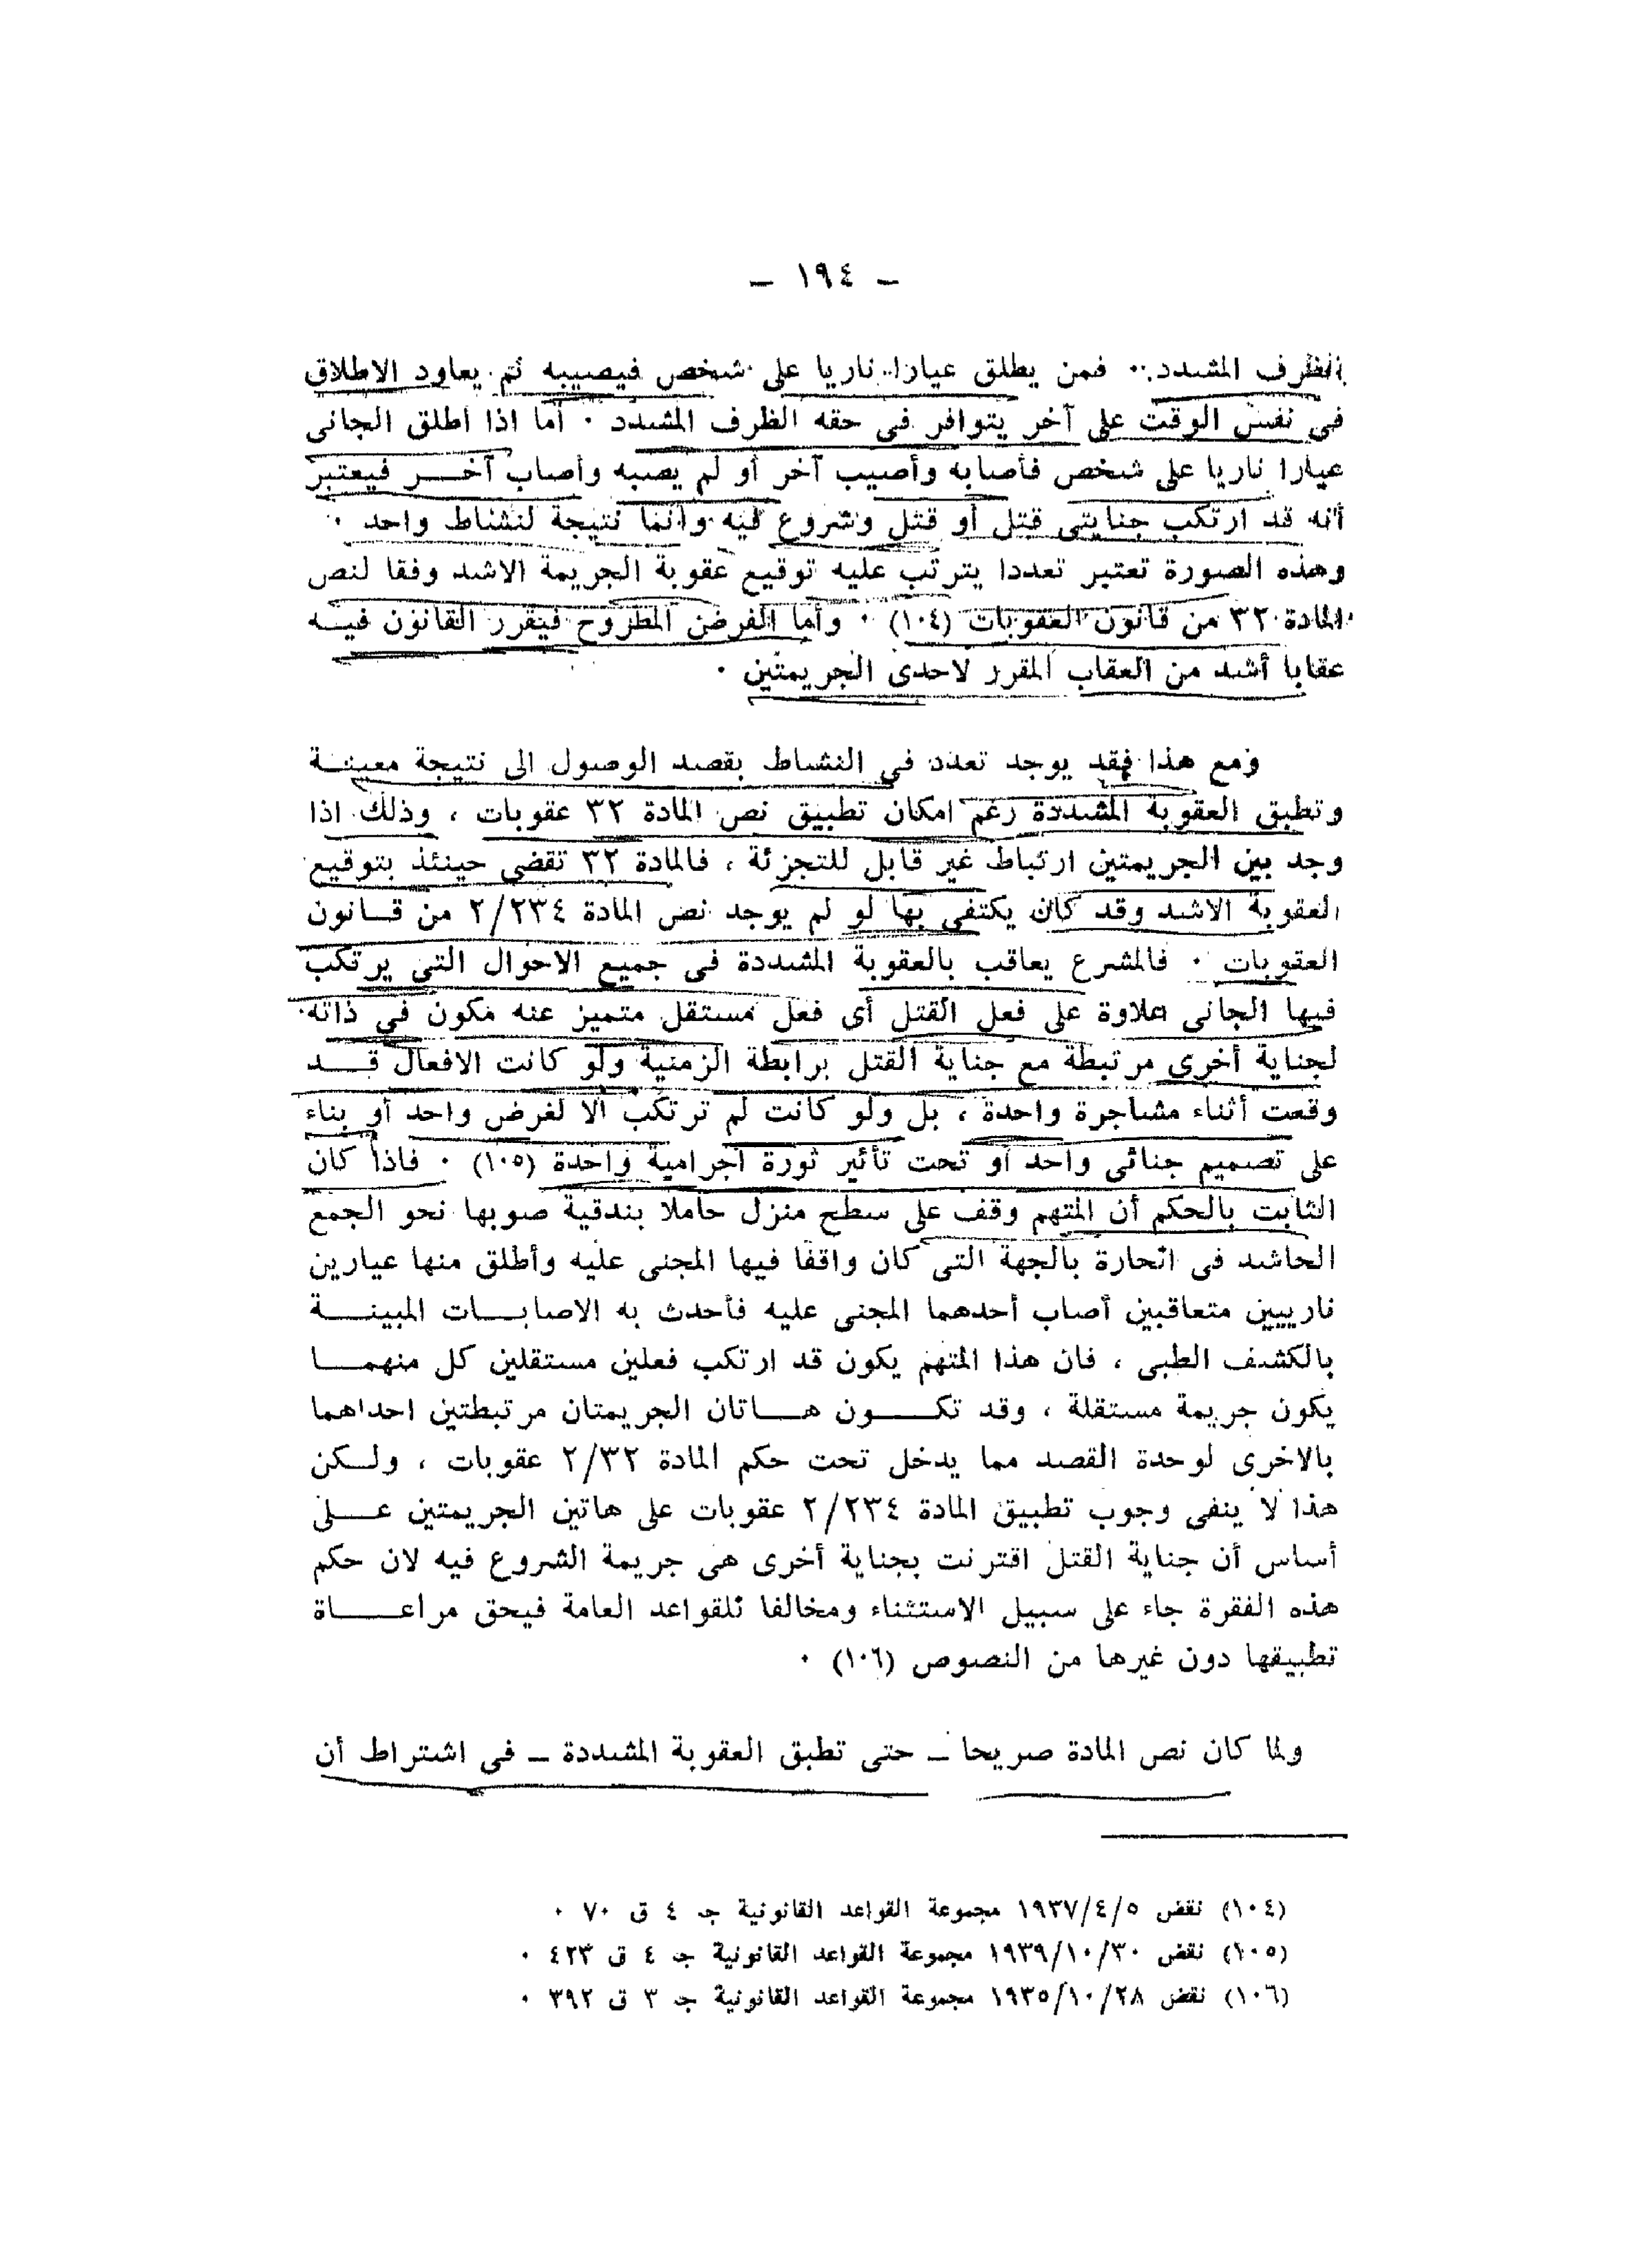 — ١٩٤ —
الظرف المشدد . فمن يطلق عيارا ناريا على شخص فيصيبه ثم يعاود الاطلاق
فى نفس الوقت على آخر يتوافر فى حقه الظرف المشدد . أما اذا أطلق الجانى
عيارا ناريا على شخص فأصابه وأصيب آخر أو لم يصبه وأصاب آخر فيعتبر
أنه قد ارتكب جنايتى قتل أو قتل وشروع فيه وانما نتيجة لنشاط واحد .
وهذه الصورة تعتبر تعددا يترتب عليه توقيع عقوبة الجريمة الاشد وفقا لنص
المادة ٣٢ من قانون العقوبات (١٠٤) . وأما الفرض المطروح فيقرر القانون فيه
عقابا أشد من العقاب المقرر لاحدى الجريمتين .
ومع هذا فقد يوجد تعدد فى النشاط بقصد الوصول الى نتيجة معينة
وتطبق العقوبة المشددة رغم امكان تطبيق نص المادة ٣٢ عقوبات ، وذلك اذا
وجد بين الجريمتين ارتباط غير قابل للتجزئة ، فالمادة ٣٢ تقضى حينئذ بتوقيع
العقوبة الاشد وقد كان يكتفى بها لو لم يوجد نص المادة ٢/٢٣٤ من قانون
العقوبات . فالمشرع يعاقب بالعقوبة المشددة فى جميع الاحوال التى يرتكب
فيها الجانى علاوة على فعل القتل أى فعل مستقل متميز عنه مكون فى ذاته
لجناية أخرى مرتبطة مع جناية القتل برابطة الزمنية ولو كانت الافعال قد
وقعت أثناء مشاجرة واحدة ، بل ولو كانت لم ترتكب الا لغرض واحد أو بناء
على تصميم جنائى واحد أو تحت تأثير ثورة اجرامية واحدة (١٠٥) . فاذا كان
الثابت بالحكم أن المتهم وقف على سطح منزل حاملا بندقية صوبها نحو الجمع
الحاشد فى الحارة بالجهة التى كان واقفا فيها المجنى عليه وأطلق منها عيارين
ناريين متعاقبين أصاب أحدهما المجنى عليه فأحدث به الاصابات المبينة
بالكشف الطبى ، فان هذا المتهم يكون قد ارتكب فعلين مستقلين كل منهما
يكون جريمة مستقلة ، وقد تكون هاتان الجريمتان مرتبطتين احداهما
بالاخرى لوحدة القصد مما يدخل تحت حكم المادة ٢/٣٢ عقوبات ، ولكن
هذا لا ينفى وجوب تطبيق المادة ٢/٢٣٤ عقوبات على هاتين الجريمتين على
أساس أن جناية القتل اقترنت بجناية أخرى هى جريمة الشروع فيه لان حكم
هذه الفقرة جاء على سبيل الاستثناء ومخالفا للقواعد العامة فيحق مراعاة
تطبيقها دون غيرها من النصوص (١٠٦) .
ولما كان نص المادة صريحا – حتى تطبق العقوبة المشددة – فى اشتراط أن
(١٠٤) نقض ١٩٣٧/٤/٥ مجموعة القواعد القانونية جـ ٤ ق ٧٠ .
(١٠٥) نقض ١٩٣٩/١٠/٣٠ مجموعة القواعد القانونية جـ ٤ ق ٤٢٣ .
(١٠٦) نقض ١٩٣٥/١٠/٢٨ مجموعة القواعد القانونية جـ ٣ ق ٣٩٢ .